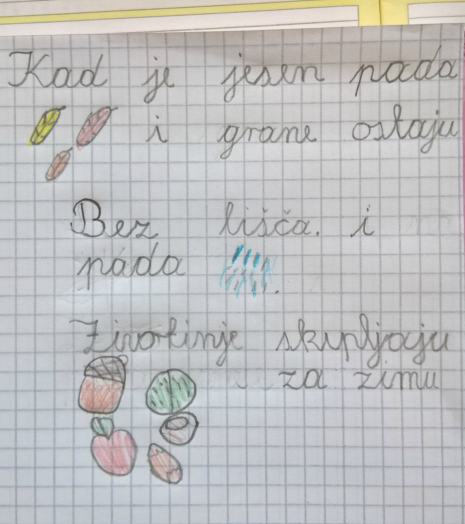 Kad je jesen pada
i grane ostaju
Bez lišča. i
pada .
Životinje skupljaju
za zimu